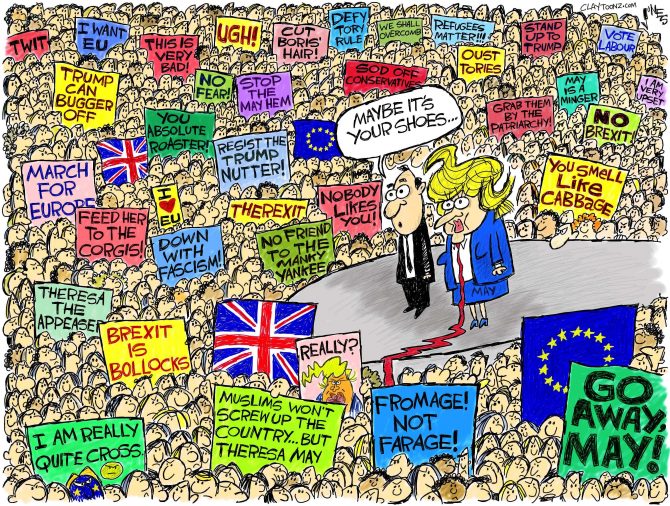 CLAYTOONZ.COM
TWIT
I WANT
EU
THIS IS
VERY
BAD!
UGH!
CUT
BORIS'
HAIR!
DEFY
TORY
RULE
WE SHALL
OVERCOMB
REFUGEES
MATTER!!!
STAND
UP TO
TRUMP!
VOTE
LABOUR
TRUMP
CAN
BUGGER
OFF
NO
FEAR!
STOP
THE
MAYHEM
SOD OFF
CONSERVATIVES
OUST
TORIES
GRAB THEM
BY THE
PATRIARCHY!
MAY
IS A
MINGER
I AM
VERY
UPSET
NO
BREXIT!
YOU
ABSOLUTE
ROASTER!
RESIST THE
TRUMP
NUTTER!
MAYBE IT'S
YOUR SHOES...
MARCH
FOR
EUROPE
I
EU
THEREXIT
NOBODY
LIKES
YOU!
YOU SMELL
LIKE
CABBAGE
FEED HER
TO THE
CORGIS!
DOWN
WITH
FASCISM!
NO FRIEND
TO THE
MANKY
YANKEE
MAY
THERESA
THE
APPEASER
BREXIT
IS
BOLLOCKS
REALLY?
I AM REALLY
QUITE CROSS.
MUSLIMS WON'T
SCREW UP THE
COUNTRY...BUT
THERESA MAY
FROMAGE!
NOT
FARAGE!
GO
AWAY,
MAY!